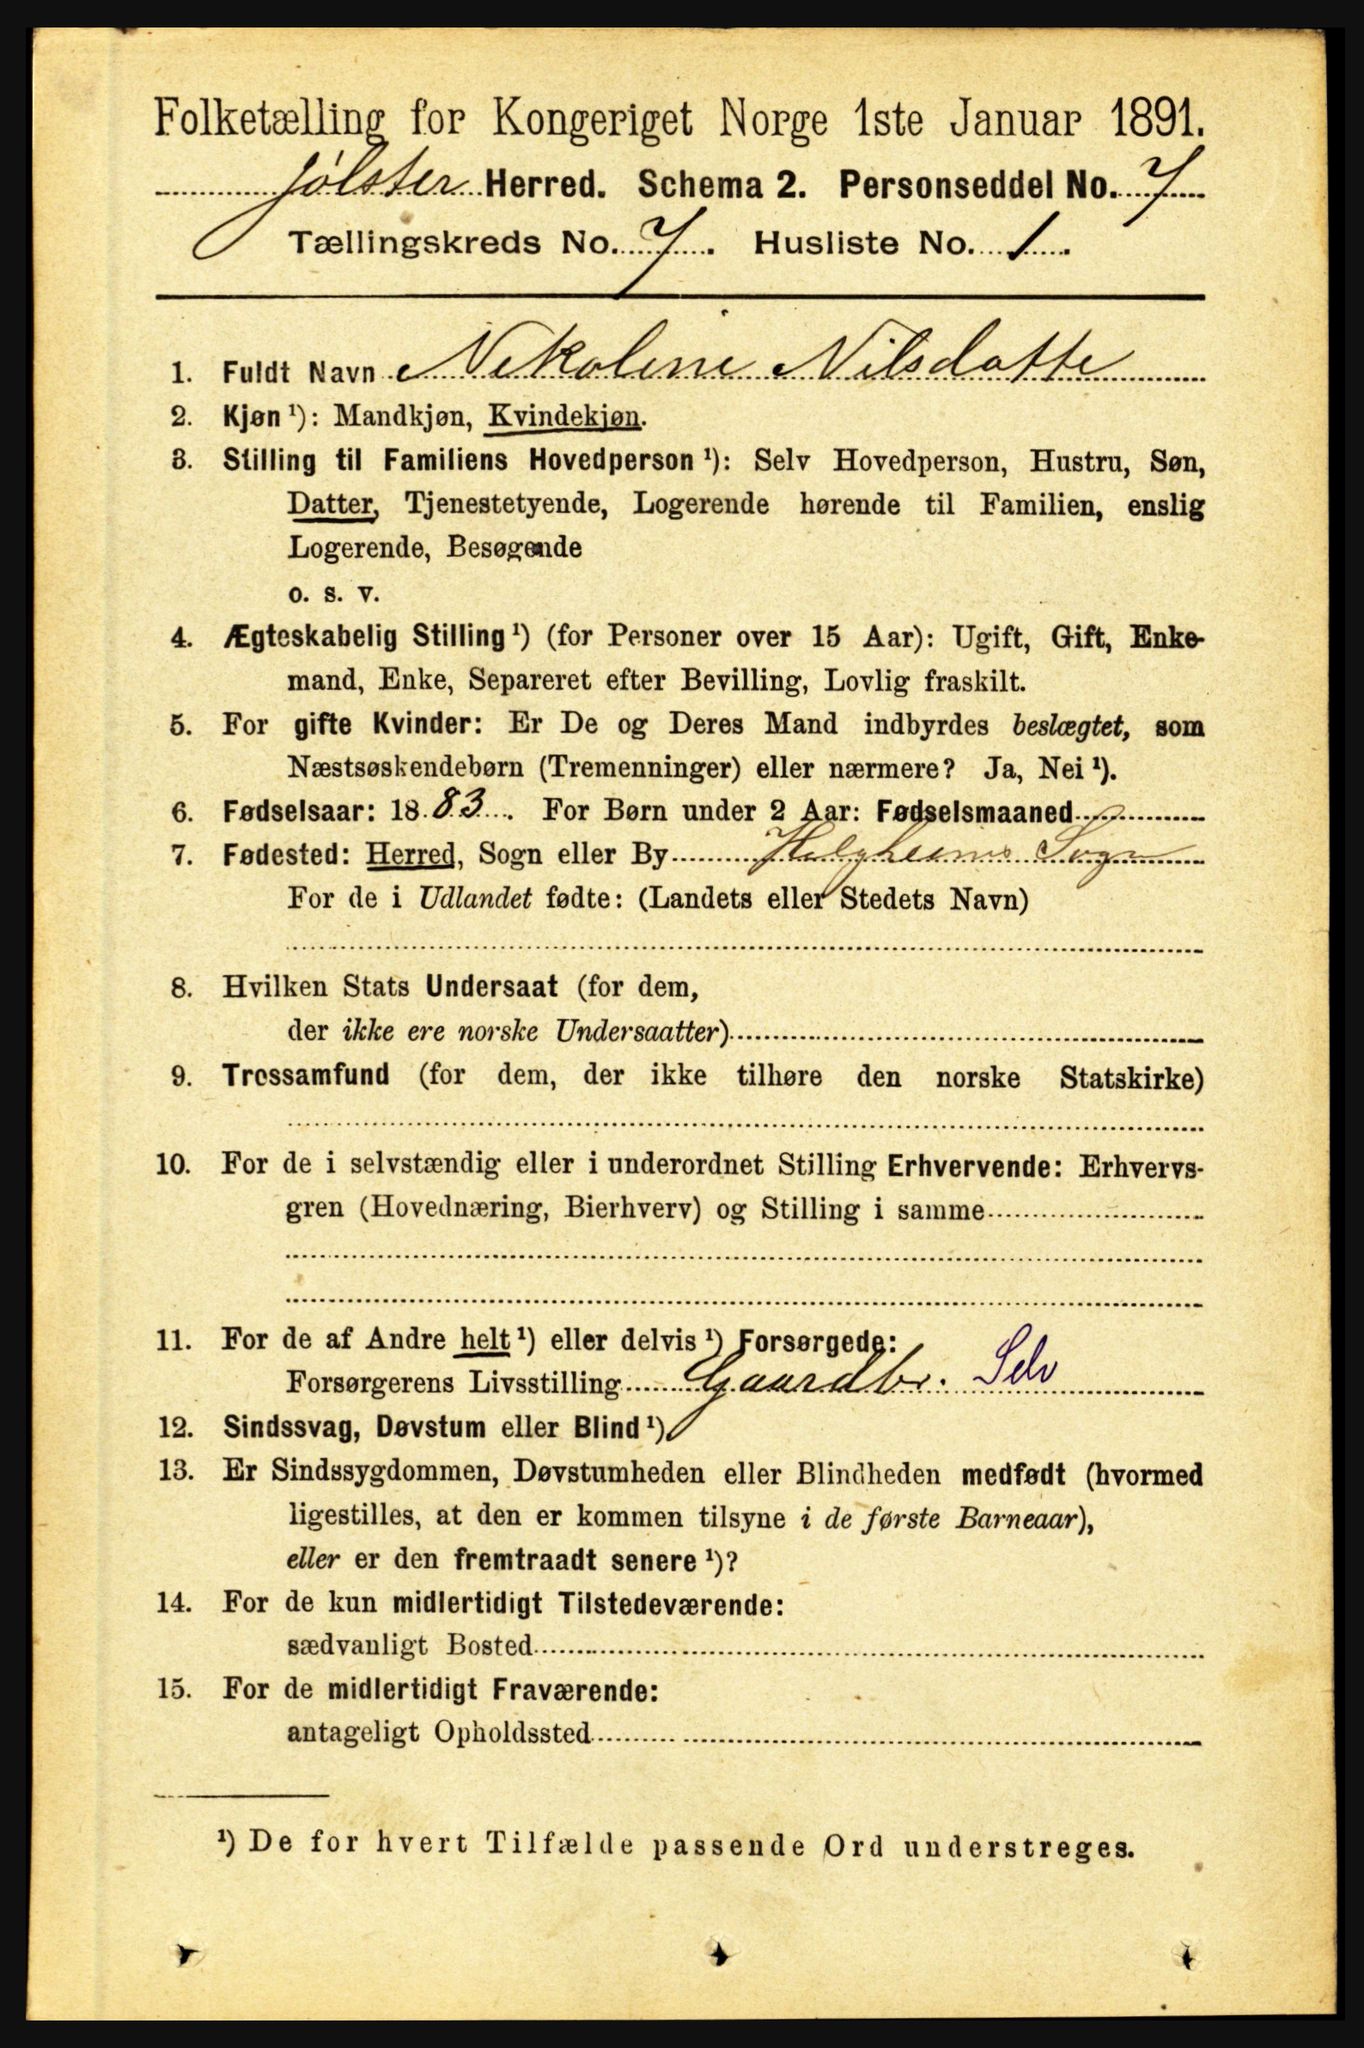 Folketælling for Kongeriget Norge 1ste Januar 1891.
Jølster Herred. Schema 2. Personseddel No. 7
Tællingskreds No. 7. Husliste No. 1.
1. Fuldt Navn Nekoline Nilsdatte
2. Kjøn ¹): Mandkjøn, Kvindekjøn.
3. Stilling til Familiens Hovedperson ¹): Selv Hovedperson, Hustru, Søn,
Datter, Tjenestetyende, Logerende hørende til Familien, enslig
Logerende, Besøgende
o. s. v.
4. Ægteskabelig Stilling ¹) (for Personer over 15 Aar): Ugift, Gift, Enke-
mand, Enke, Separeret efter Bevilling, Lovlig fraskilt.
5. For gifte Kvinder: Er De og Deres Mand indbyrdes beslægtet, som
Næstsøskendebørn (Tremenninger) eller nærmere? Ja, Nei ¹).
6. Fødselsaar: 1883. For Børn under 2 Aar: Fødselsmaaned
7. Fødested: Herred, Sogn eller By Helgheims Sogn
For de i Udlandet fødte: (Landets eller Stedets Navn)
8. Hvilken Stats Undersaat (for dem,
der ikke ere norske Undersaatter)
9. Trossamfund (for dem, der ikke tilhøre den norske Statskirke)
10. For de i selvstændig eller i underordnet Stilling Erhvervende: Erhvervs-
gren (Hovednæring, Bierhverv) og Stilling i samme
11. For de af Andre helt ¹) eller delvis ¹) Forsørgede:
Forsørgerens Livsstilling Gaardbr. Selv
12. Sindssvag, Døvstum eller Blind ¹)
13. Er Sindssygdommen, Døvstumheden eller Blindheden medfødt (hvormed
ligestilles, at den er kommen tilsyne i de første Barneaar),
eller er den fremtraadt senere ¹)?
14. For de kun midlertidigt Tilstedeværende:
sædvanligt Bosted
15. For de midlertidigt Fraværende:
antageligt Opholdssted
¹) De for hvert Tilfælde passende Ord understreges.